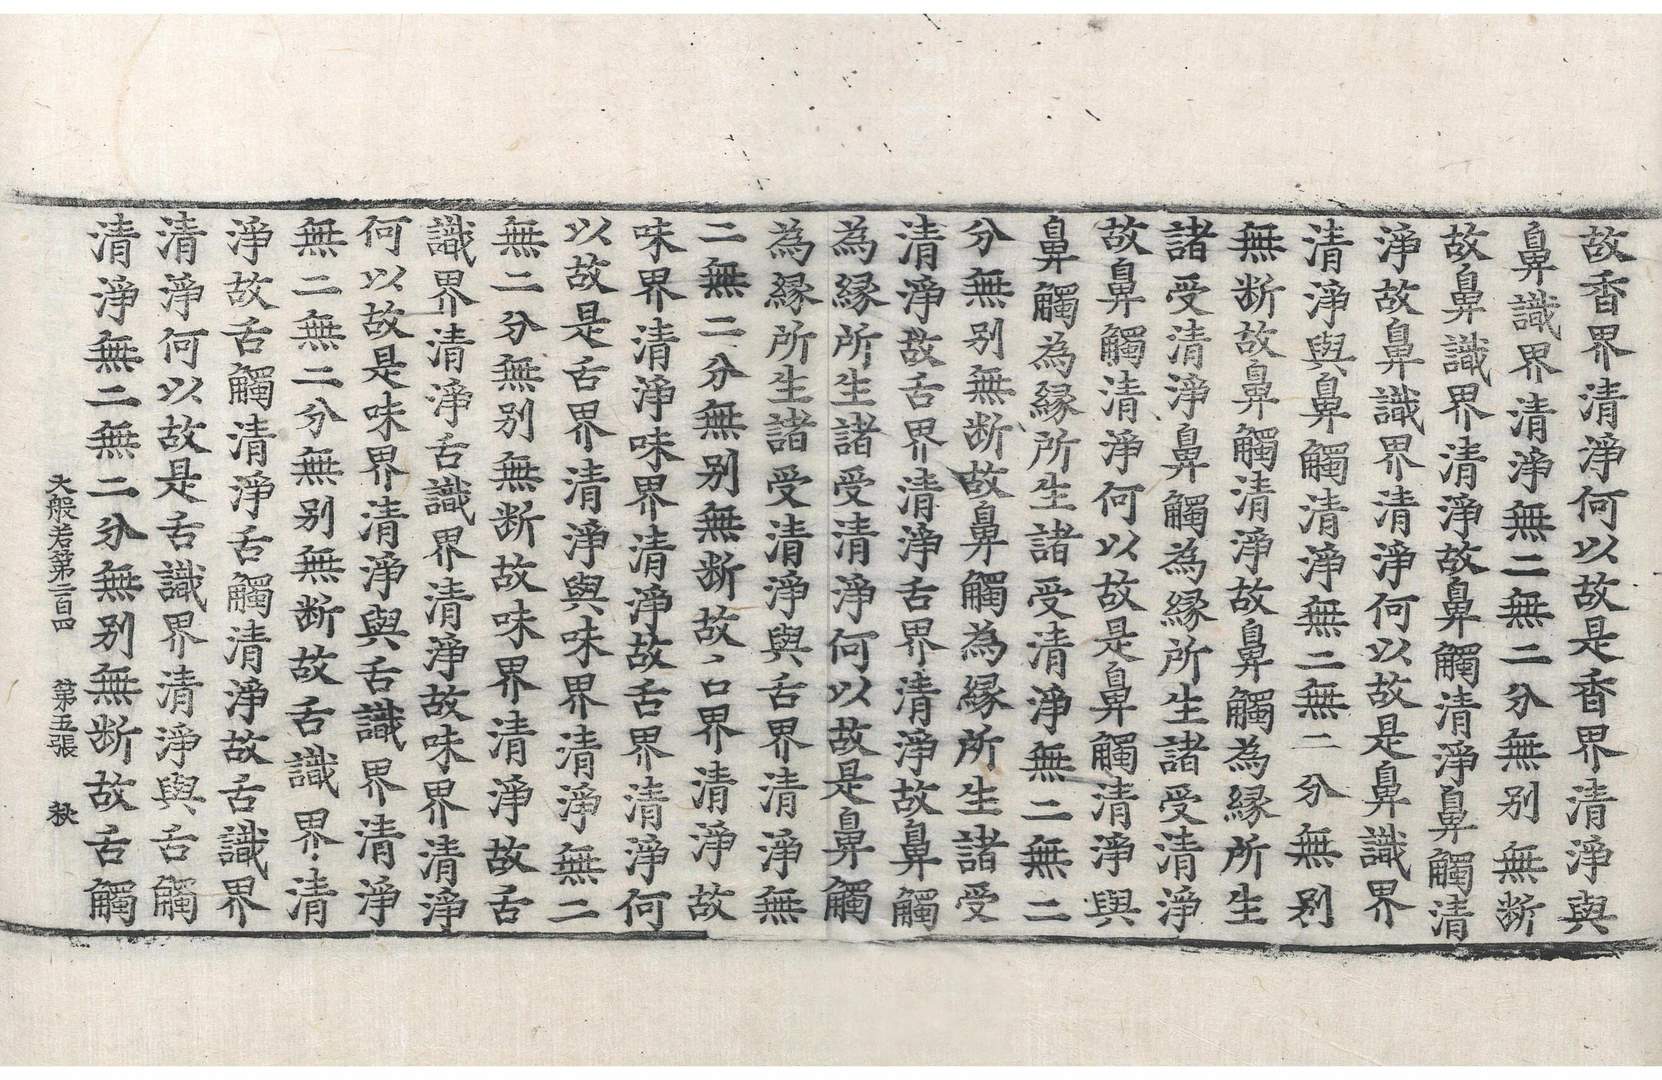 故香界清淨何以故是香界清淨與
鼻識界清淨無二無二分無别無断
故鼻識界清淨故鼻觸清淨鼻觸清
淨故鼻識界清淨何以故是鼻識界
清淨與鼻觸清淨無二無二分無别
無断故鼻觸清淨故鼻觸為縁所生
諸受清淨鼻觸為縁所生諸受清淨
故鼻觸清淨何以故是鼻觸清淨與
鼻觸為縁所生諸受清淨無二無二
分無别無断故鼻觸為縁所生諸受
清淨故舌界清淨舌界清淨故鼻觸
為縁所生諸受清淨何以故是鼻觸
為縁所生諸受清淨與舌界清淨無
二無二分無别無断故舌界清淨故
味界清淨味界清淨故舌界清淨何
以故是舌界清淨與味界清淨無二
無二分無别無断故味界清淨故舌
識界清淨舌識界清淨故味界清淨
何以故是味界清淨與舌識界清淨
無二無二分無别無断故舌識界清
淨故舌觸清淨舌觸清淨故舌識界
清淨何以故是舌識界清淨與舌觸
清淨無二無二分無别無断故舌觸
大般若第二百四 第五張 秋